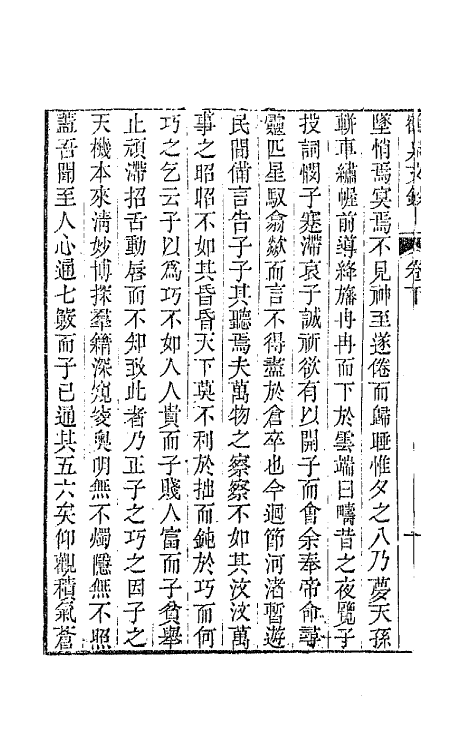 卷下
墜悄焉寞焉不見神至遂倦而歸睡惟夕之八乃夢天孫
駢車繡幄前導絳旛冉冉而下於雲端曰疇昔之夜覽子
投詞憫子蹇滯哀子誠祈欲有以開子而會余奉帝命尋
靈匹星馭翕歘而言不得盡於倉卒也今迴節河渚暫遊
民間備言告子子其聽焉夫萬物之察察不如其汶汶萬
事之昭昭不如其昏昏天下莫不利於拙而鈍於巧而何
巧之乞云子以爲巧不如人人貴而子賤人富而子貧舉
止頑滯招舌動唇而不知致此者乃正子之巧之因子之
天機本來淸妙博探羣籍深窺奧明無不燭隱無不照
蓋吾聞至人心通七竅而子已通其五六矣仰觀積氣蒼